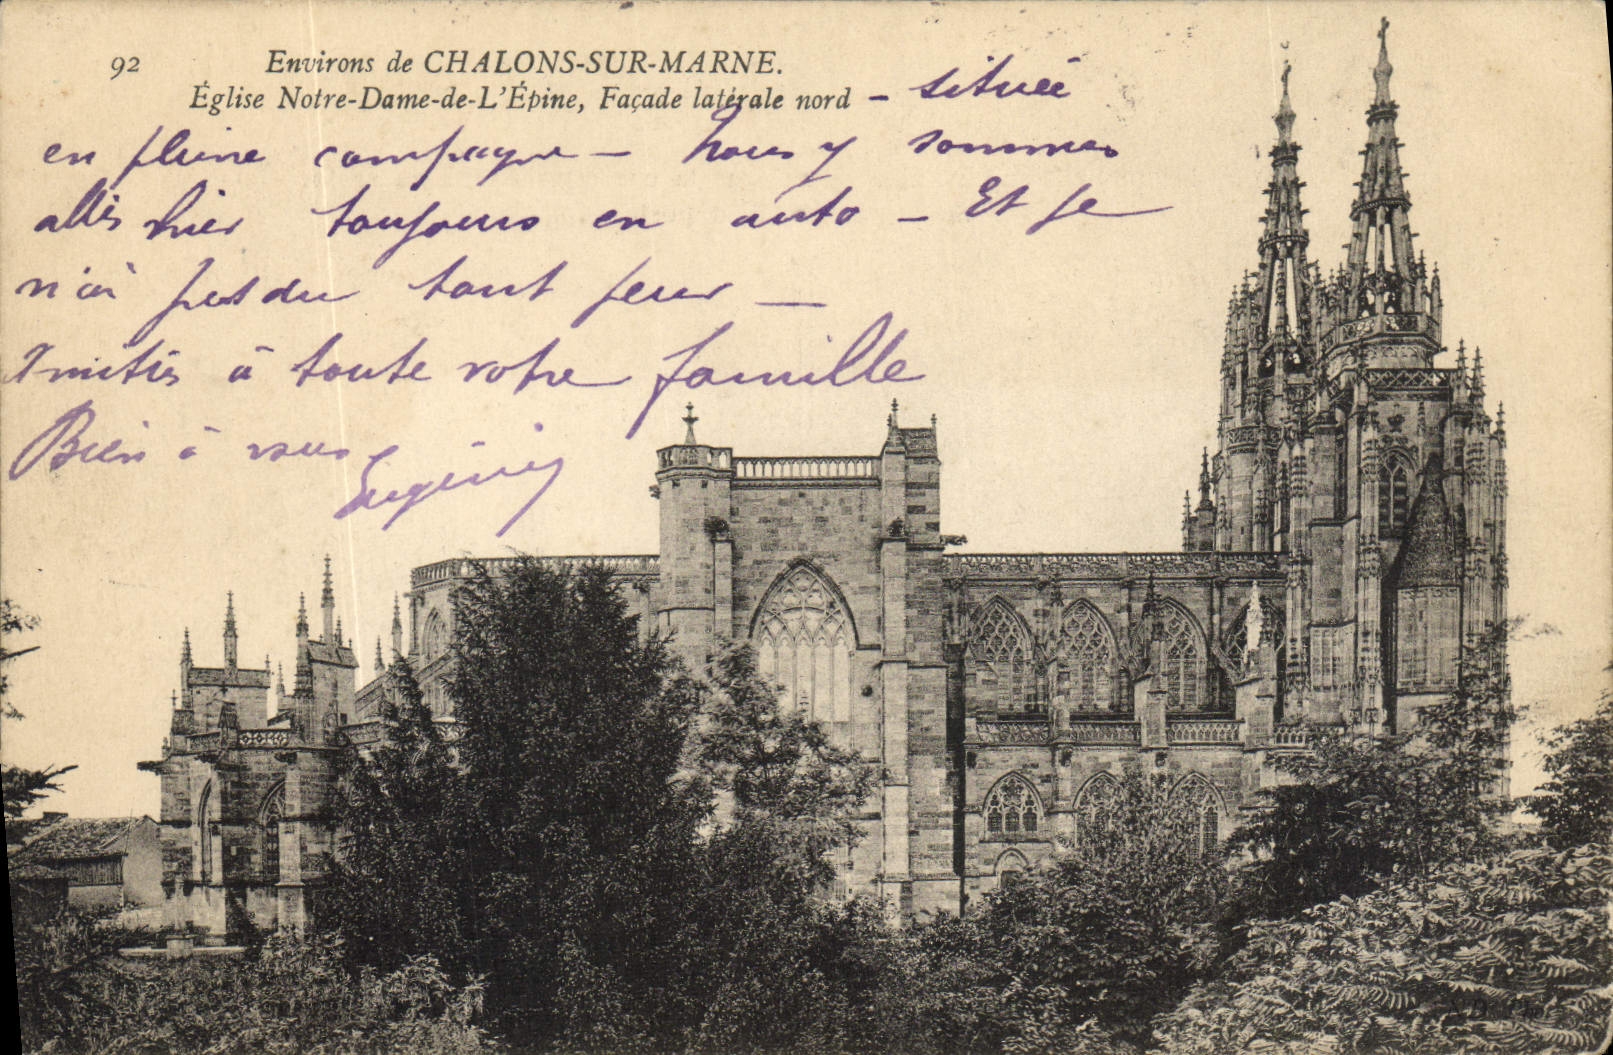 92 Environs de CHALONS-SUR-MARNE.
Église Notre-Dame-de-L'Épine, Façade latérale nord – située
en pleine campagne – nous y sommes
allés hier toujours en auto – Et je
n'ai pas du tout peur –
Amitiés à toute votre famille
Bien à vous